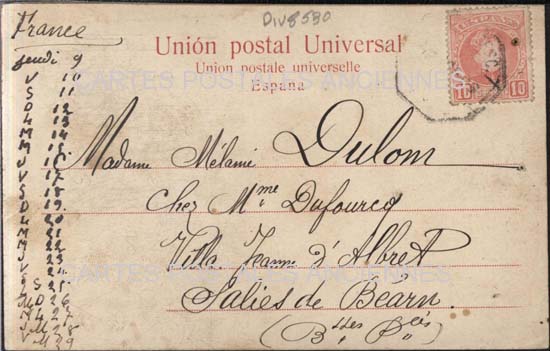 France
Div8580
Unión postal Universal
Union postale universelle
España
ESPAÑA
10 10
CARTES POSTALES ANCIENNES
Madame Mélanie Dulom
Chez Mme Dufourcq
Villa Jeanne d'Albret
Salies de Béarn.
(Bsses Pées)
CARTES POSTALES ANCIENNES
jeudi 9
V 10
S 11
D 12
L 13
M 14
M 15
J 16
V 17
S 18
D 19
L 20
M 21
M 22
J 23
V 24
S 25
D 26
L 27
M 28
M 29